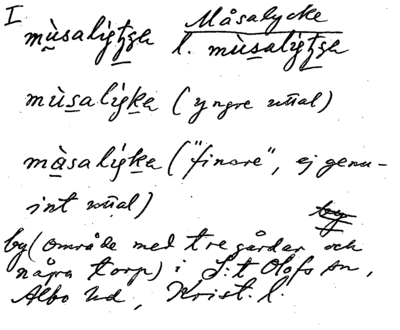 I
Måsalycke
mùsaligtga l. mùsaligtga
mùsaligka (yngre uttal)
màsaligka ("finare", ej genu-
int uttal)
by (område med tre gårdar och
några torp) i S:t Olofs sn,
Albo hd, Krist. l.